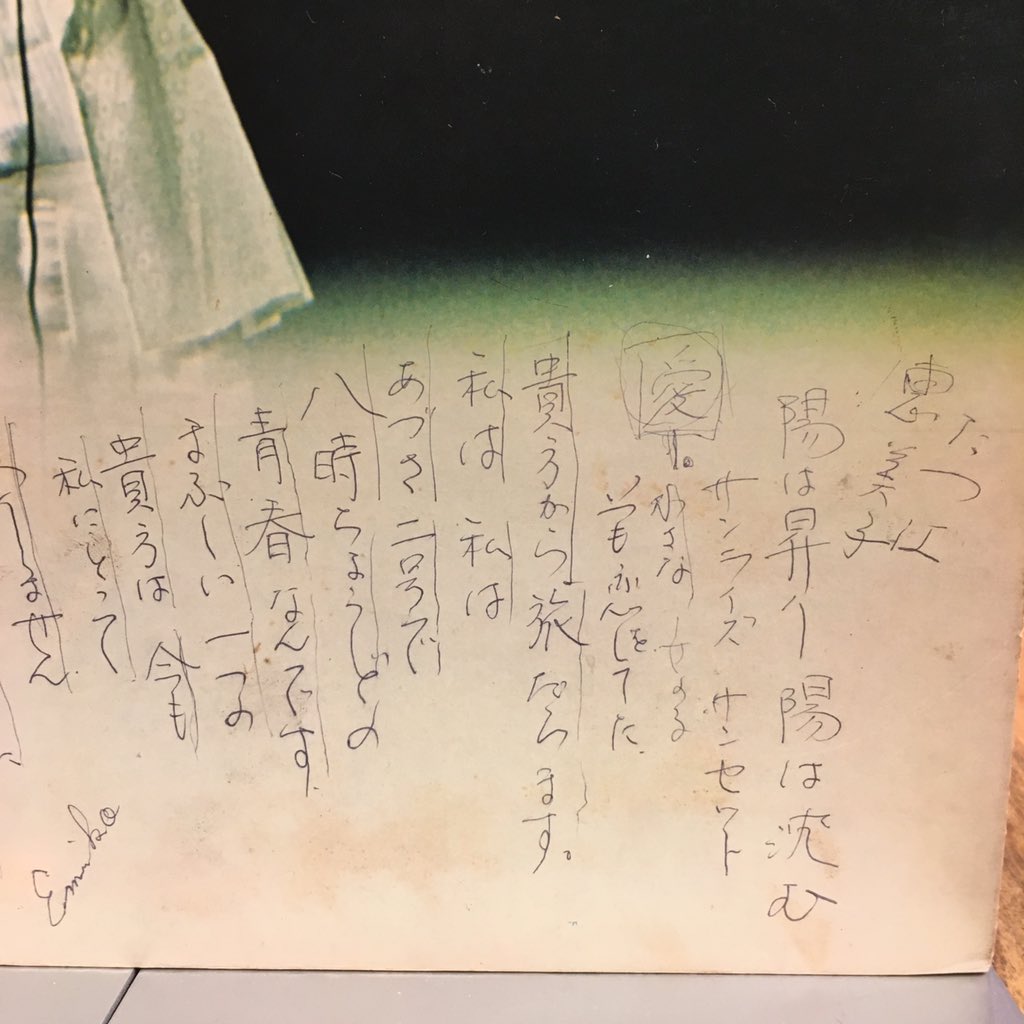 恵美子
陽は昇り 陽は沈む
サンライズ サンセット
愛
も恋をしてた
貴方から旅だちます。
私は 私は
あづさ二号で
八時ちょうどの
青春なんです
まぶしい一つの
貴方は 今も
私にとって
ません
Emiko